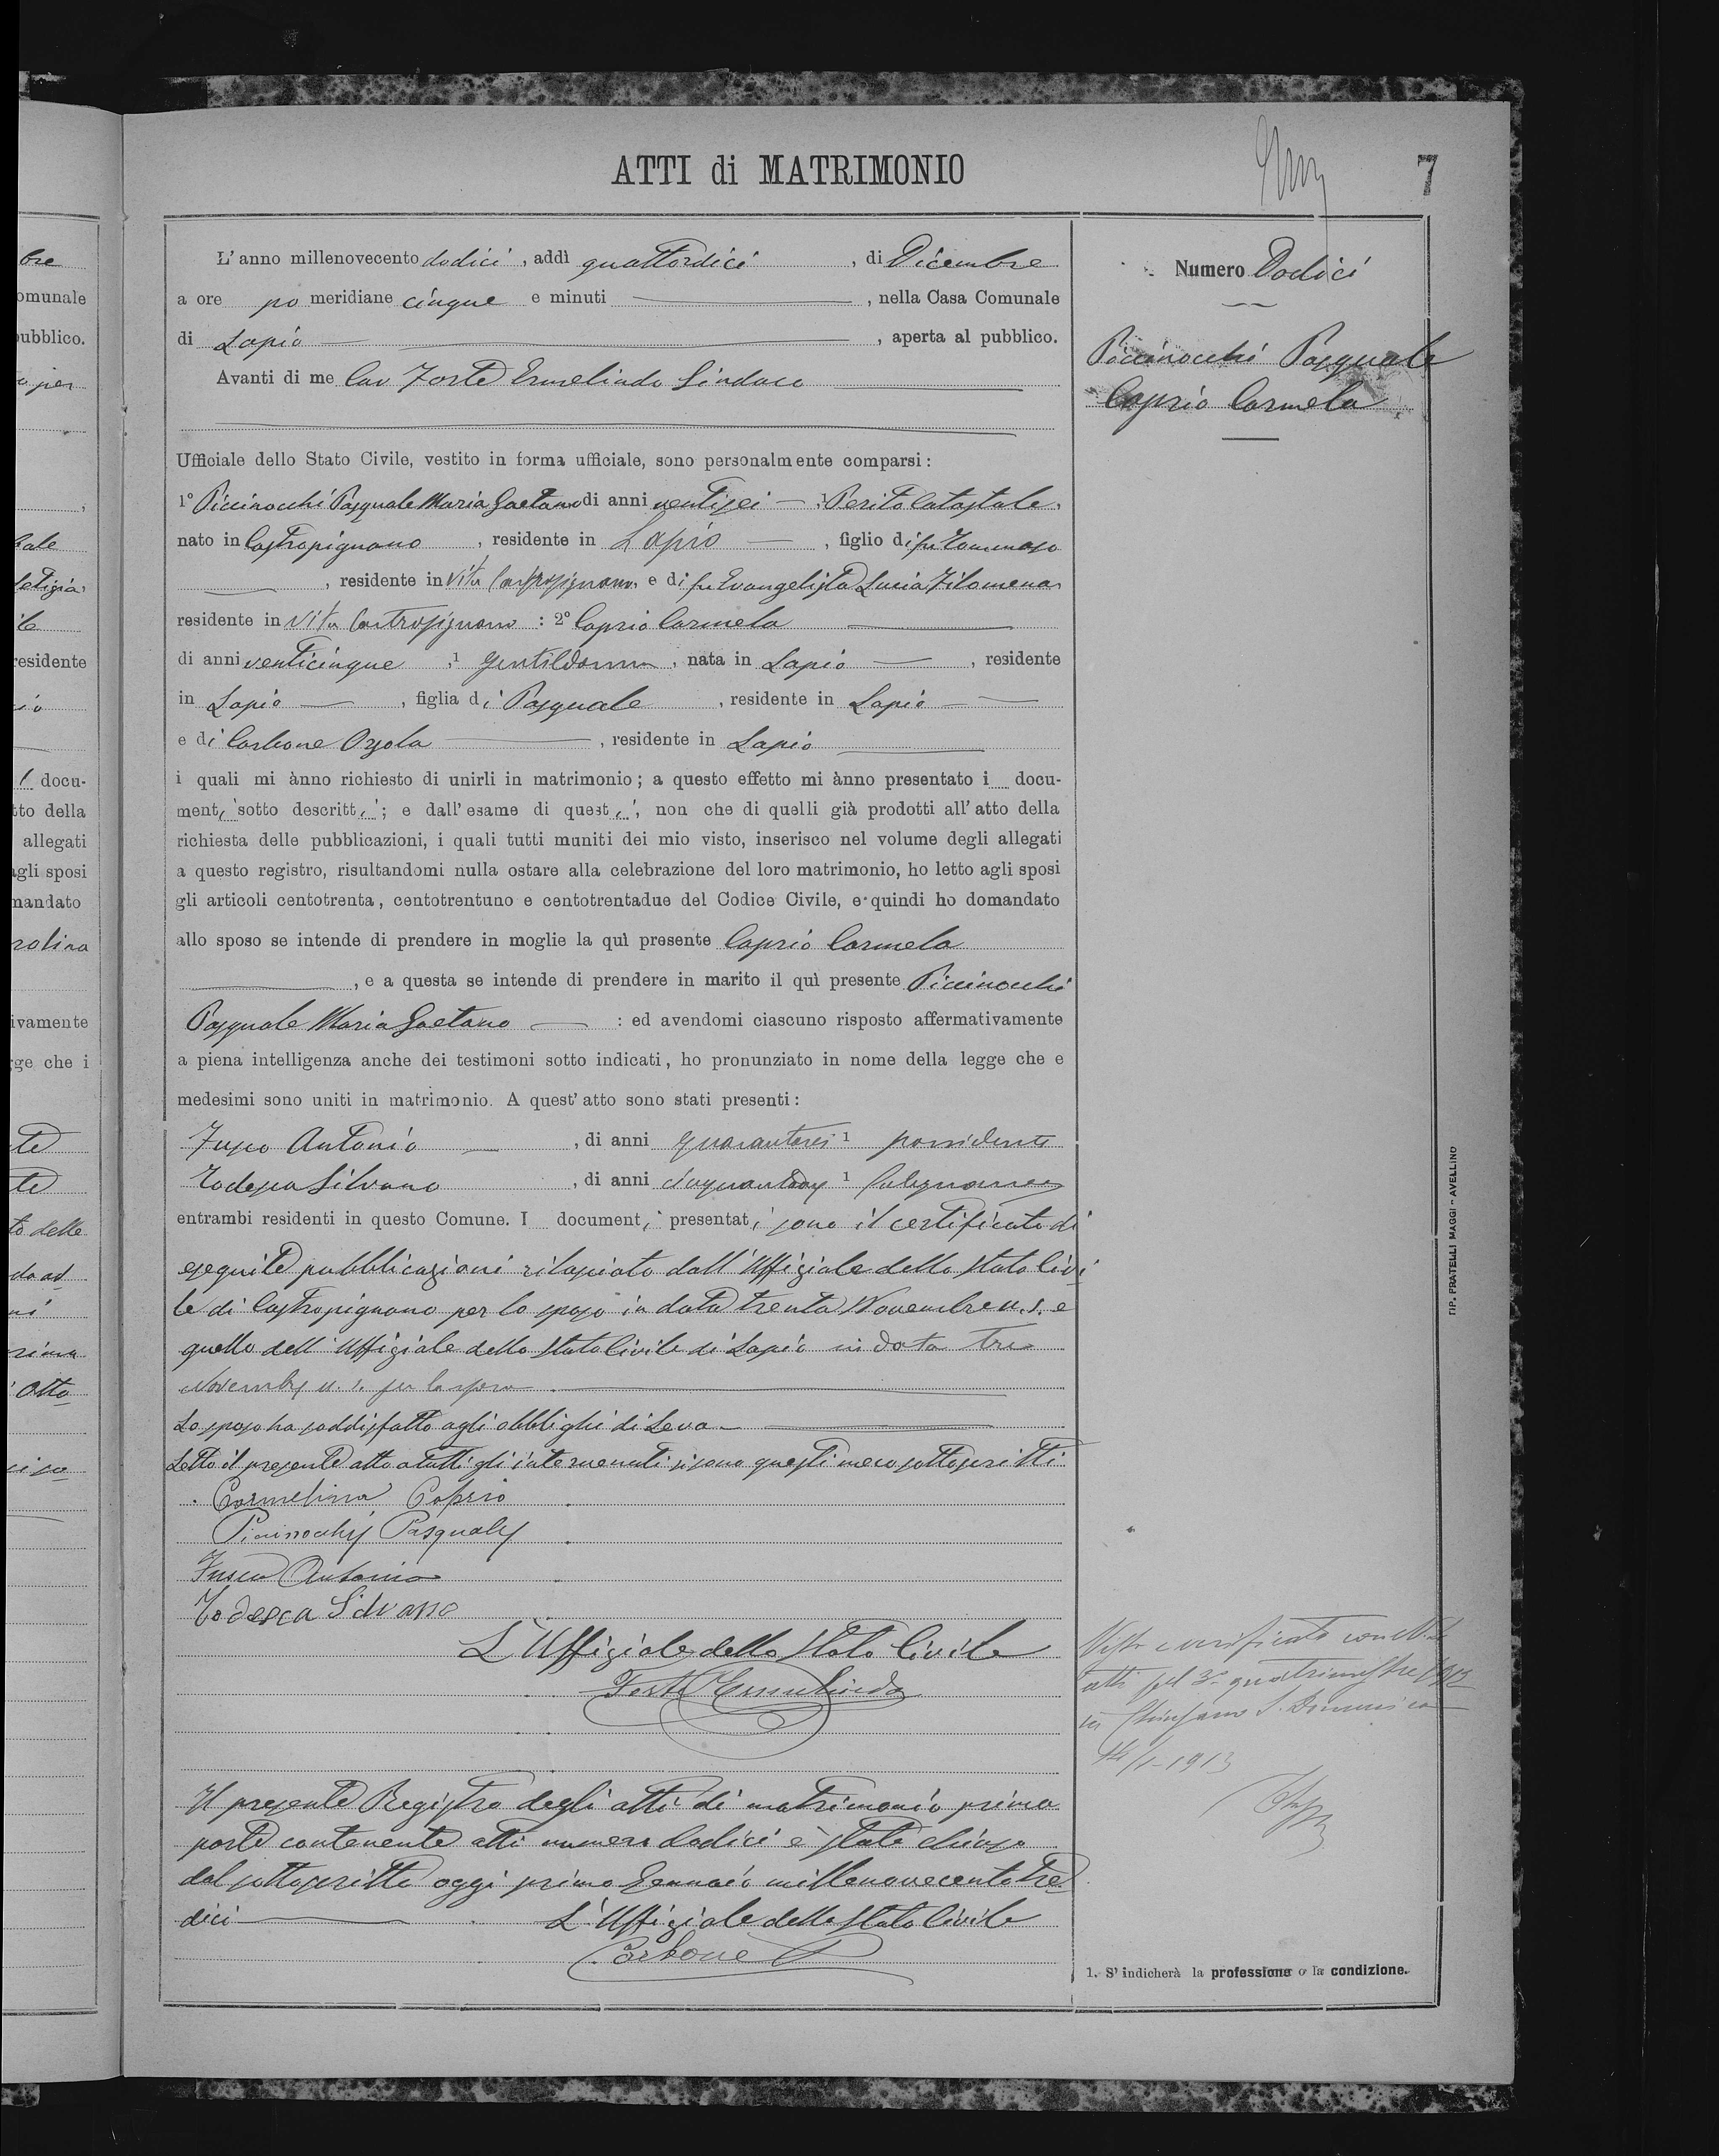 ATTI di MATRIMONIO
7
L'anno millenovecento dodici, addì quattordici, di Dicembre
a ore po meridiane cinque e minuti, nella Casa Comunale
di Lapio, aperta al pubblico.
Avanti di me Cav Forte Ermelindo Sindaco
Ufficiale dello Stato Civile, vestito in forma ufficiale, sono personalmente comparsi:
1° Piccinocchi Pasquale Maria Gaetano di anni ventisei, 1 Perito Catastale,
nato in Castropignano, residente in Lapio, figlio di fu Tommaso
, residente in vita Castropignano e di fu Evangelista Lucia Filomena
residente in vita Castropignano: 2° Caprio Carmela
di anni venticinque, 1 gentildonna, nata in Lapio, residente
in Lapio, figlia di Pasquale, residente in Lapio
e di Carbone Orsola, residente in Lapio
i quali mi ànno richiesto di unirli in matrimonio; a questo effetto mi ànno presentato i docu-
menti sotto descritti; e dall'esame di questi, non che di quelli già prodotti all'atto della
richiesta delle pubblicazioni, i quali tutti muniti dei mio visto, inserisco nel volume degli allegati
a questo registro, risultandomi nulla ostare alla celebrazione del loro matrimonio, ho letto agli sposi
gli articoli centotrenta, centotrentuno e centotrentadue del Codice Civile, e quindi ho domandato
allo sposo se intende di prendere in moglie la quì presente Caprio Carmela
, e a questa se intende di prendere in marito il quì presente Piccinocchi
Pasquale Maria Gaetano: ed avendomi ciascuno risposto affermativamente
a piena intelligenza anche dei testimoni sotto indicati, ho pronunziato in nome della legge che e
medesimi sono uniti in matrimonio. A quest'atto sono stati presenti:
Fusco Antonio, di anni 1 possidente
Todesca Silvano, di anni 1 falegname
entrambi residenti in questo Comune. I documenti presentati sono il certificato di
eseguite pubblicazioni rilasciato dall'Uffiziale dello Stato Civi
le di Castropignano per lo sposo in data trenta Novembre u.s. e
quello dell'Uffiziale dello Stato Civile di Lapio in data tre
Novembre u.s. per la sposa
Lo sposo ha soddisfatto agli obblighi di Leva
Letto il presente atto a tutti gli intervenuti si sono questi meco sottoscritti
Carmelina Caprio
Piccinocchi Pasquale
Fusco Antonio
Todesca Silvano
L'Uffiziale dello Stato Civile
Forte Ermelindo
Il presente Registro degli atti di matrimonio prima
parte contenente atti numero dodici è stato chiuso
dal sottoscritto oggi primo Gennaio millenovecentotre
dici L'Uffiziale dello Stato Civile
Carbone
Numero Dodici
Piccinocchi Pasquale
Caprio Carmela
Visto e verificato con N.
atti pel 3° quatrimestre 1912
in
14/1-1913
1. S'indicherà la professione o la condizione.
TIP. FRATELLI MAGGI - AVELLINO
bre
omunale
pubblico.
a per
residente
docu-
tto della
allegati
agli sposi
mandato
rolina
ivamente
rge che i
to delle
do ad
prima
Otto